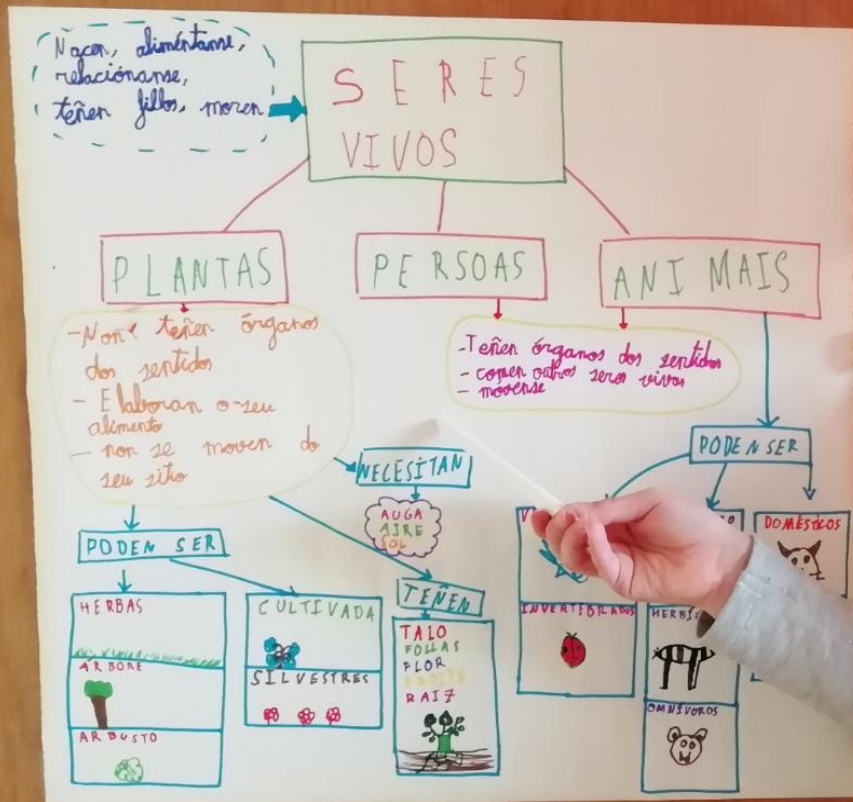 Nacen, aliméntanse,
relaciónanse,
teñen fillos, moren
SERES
VIVOS
PLANTAS
PERSOAS
ANIMAIS
-Non teñen órganos
dos sentidos
- Elaboran o seu
alimento
- non se moven do
seu sitio
-Teñen órganos dos sentidos
- comen outros seres vivos
- móvense
NECESITAN
AUGA
AIRE
SOL
PODEN SER
PODEN SER
HERBAS
ÁRBORE
ARBUSTO
CULTIVADA
SILVESTRES
TEÑEN
TALO
FOLLAS
FLOR
FROITO
RAIZ
INVERTEBRADOS
OMNÍVOROS
DOMÉSTICOS